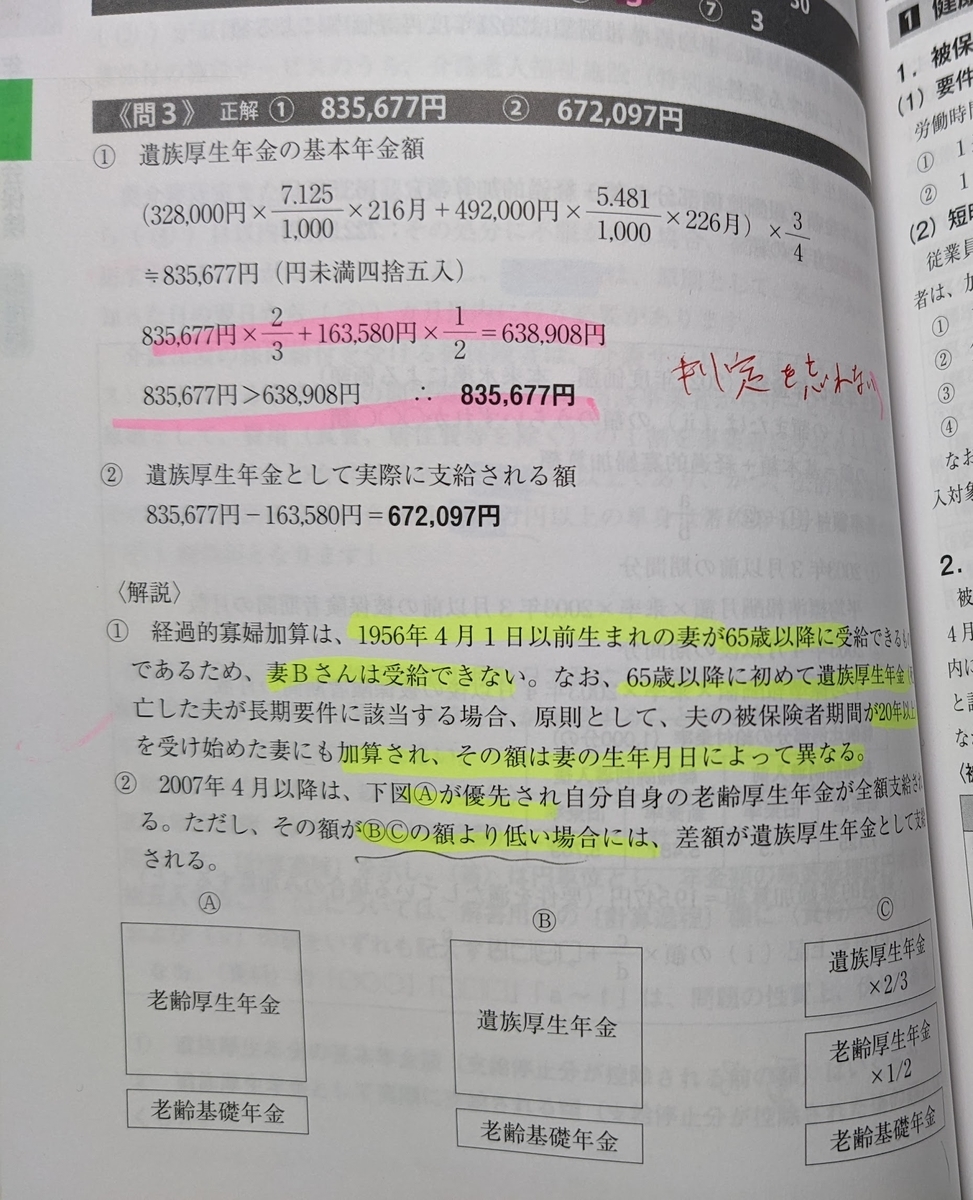 ⑦ 3
《問3》 正解 ① 835,677円 ② 672,097円
① 遺族厚生年金の基本年金額
(328,000円×7.125/1,000×216月+492,000円×5.481/1,000×226月)×3/4
≒835,677円(円未満四捨五入)
835,677円×2/3+163,580円×1/2=638,908円
835,677円>638,908円 ∴ 835,677円
判定を忘れない
② 遺族厚生年金として実際に支給される額
835,677円−163,580円=672,097円
〈解説〉
① 経過的寡婦加算は、1956年4月1日以前生まれの妻が65歳以降に受給できるも
であるため、妻Bさんは受給できない。なお、65歳以降に初めて遺族厚生年金
亡した夫が長期要件に該当する場合、原則として、夫の被保険者期間が20年以上
を受け始めた妻にも加算され、その額は妻の生年月日によって異なる。
② 2007年4月以降は、下図Ⓐが優先され自分自身の老齢厚生年金が全額支給され
る。ただし、その額がⒷⒸの額より低い場合には、差額が遺族厚生年金として支給
される。
Ⓐ
老齢厚生年金
老齢基礎年金
Ⓑ
遺族厚生年金
老齢基礎年金
Ⓒ
遺族厚生年金
×2/3
老齢厚生年金
×1/2
老齢基礎年金
1 健
1.被保
(1)要件
労働時間
① 1
② 1
(2)短時
従業員
者は、
①
②
③
④
なお
入対象
2.
被
4月
内に
と認
な